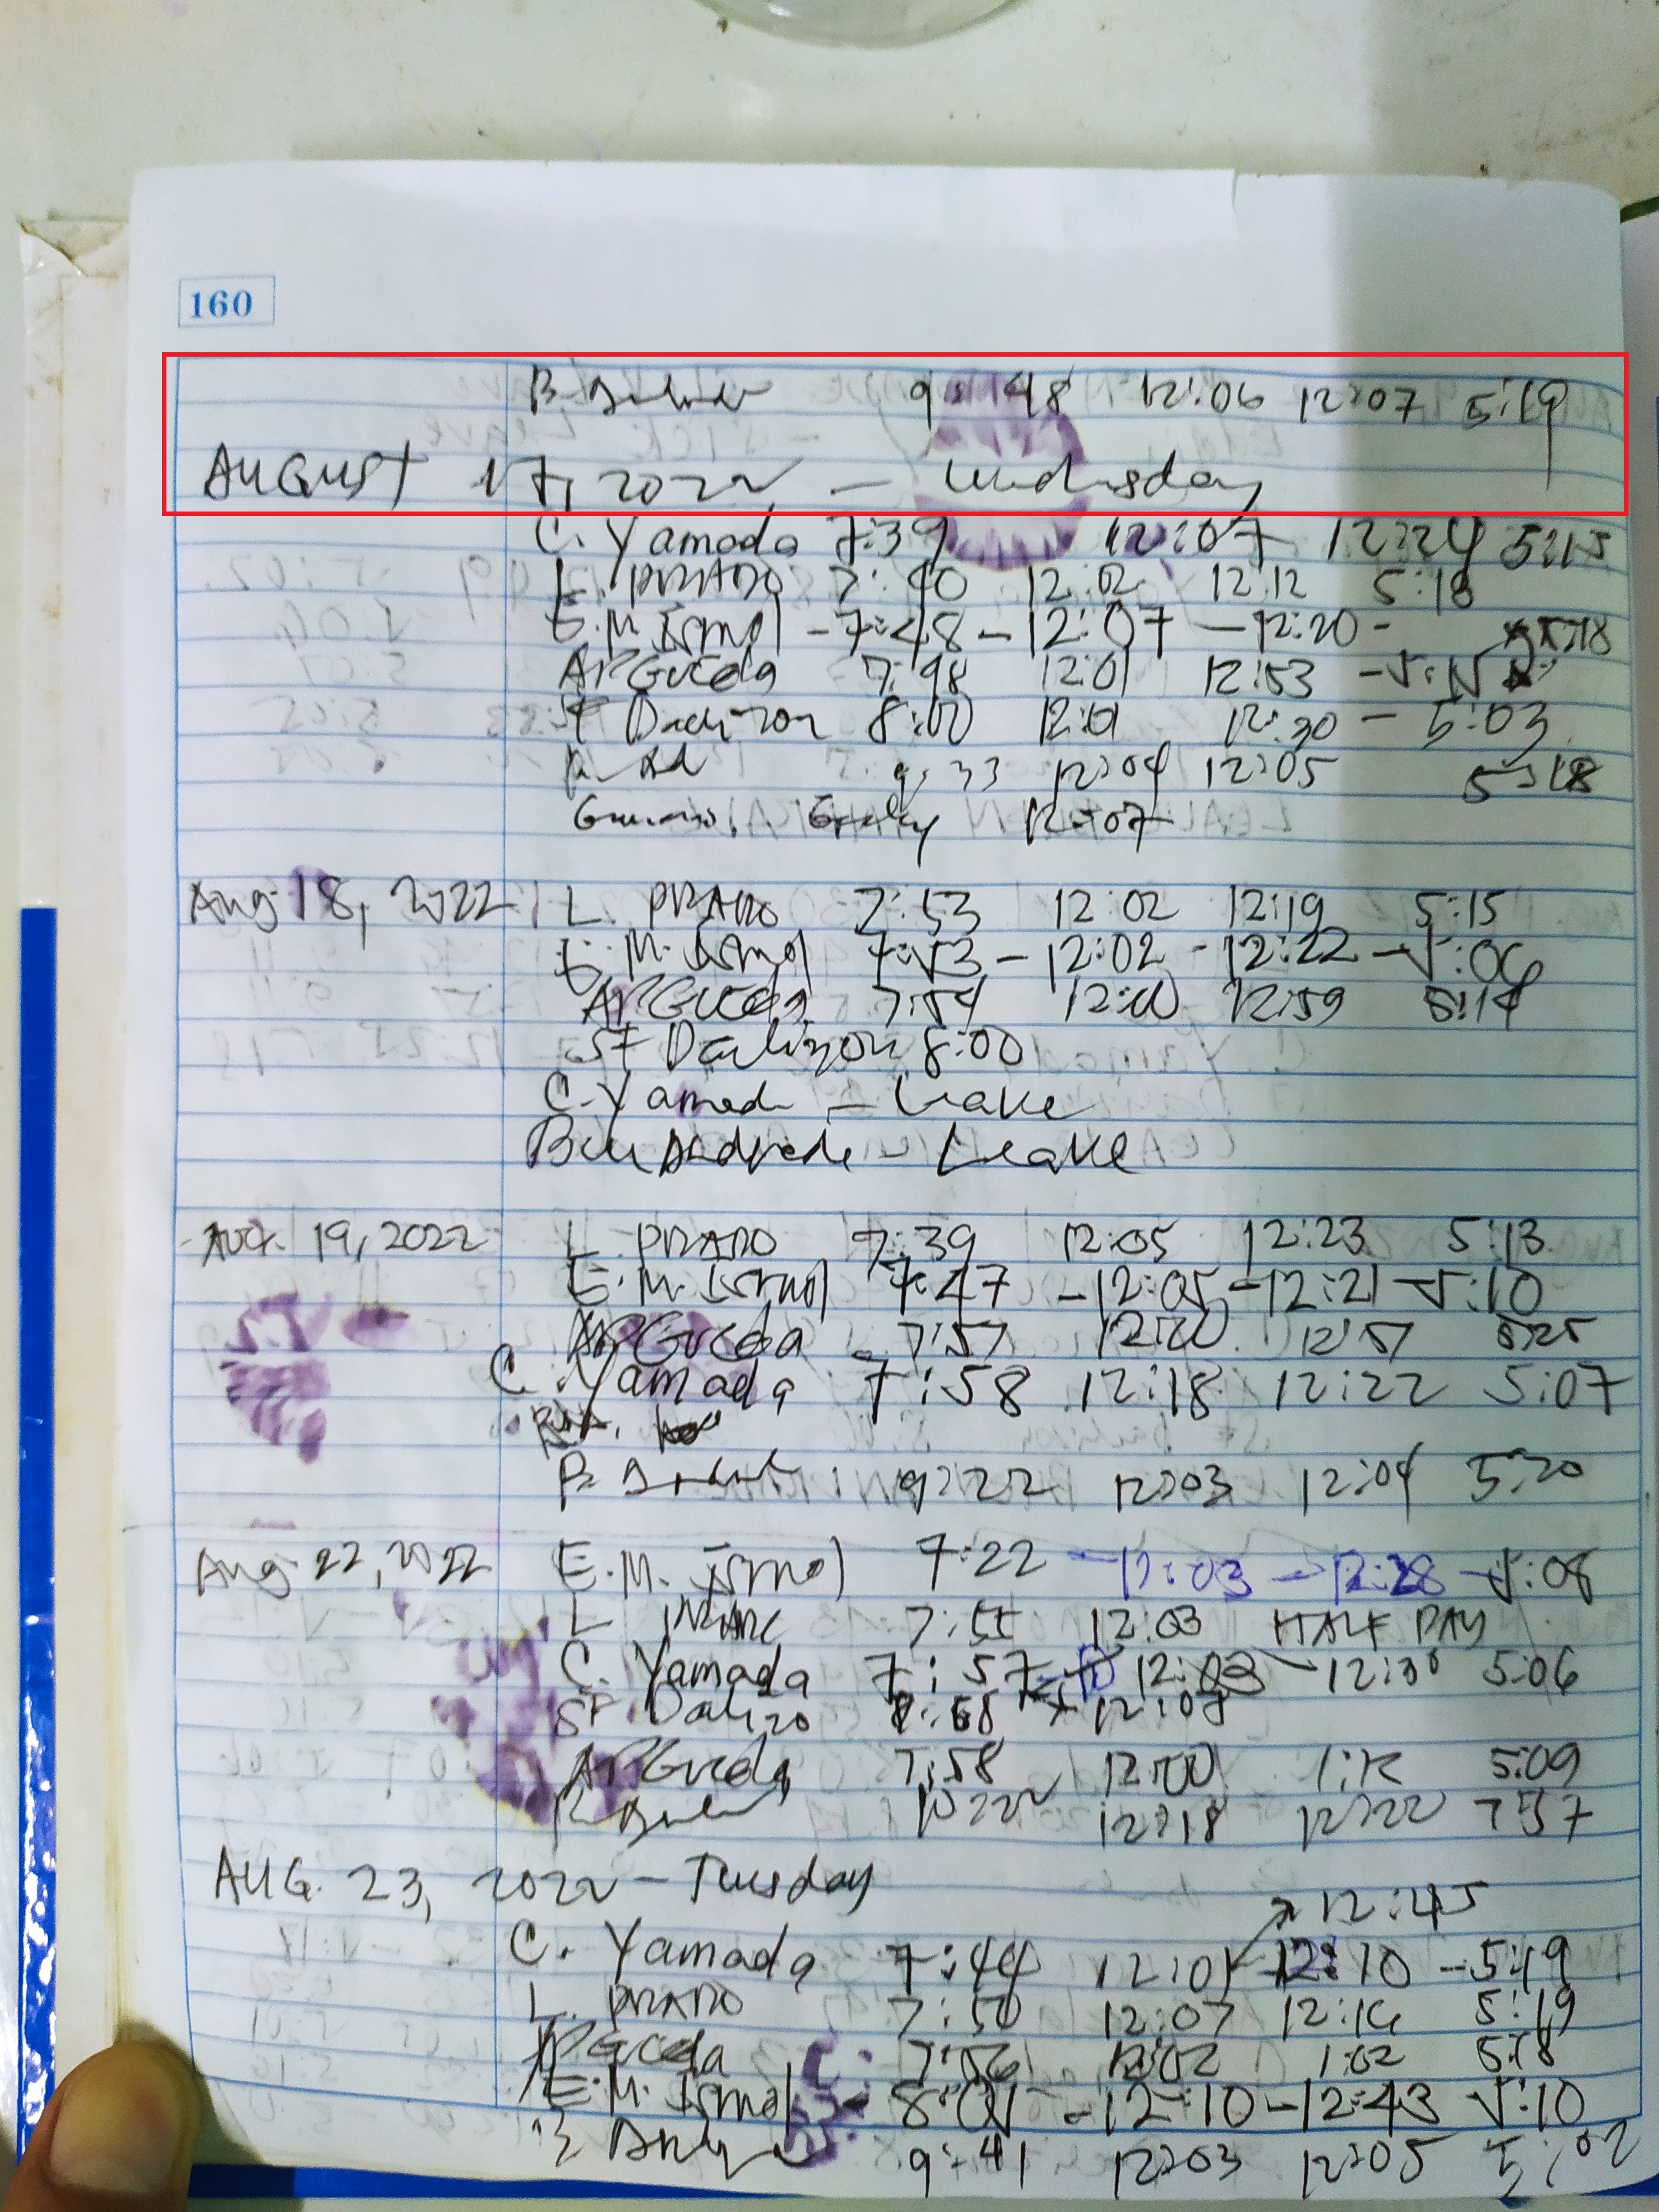 160
B. 9:48 12:06 12:07 5:19
AUGUST 17, 2022 - Wednesday
C. Yamada 7:39 12:07 12:24 5:15
L. PRADO 7:40 12:02 12:12 5:18
E.M. Ismol - 7:48 - 12:07 - 12:20 - 5:18
APGueda 7:48 12:01 12:53 - 5:15
ST Dalizon 8:00 12:01 12:30 - 5:03
9:33 12:04 12:05 5:18
12:07
Aug 18, 2022 L. PRADO 7:53 12:02 12:19 5:15
E.M. Ismol 7:53 - 12:02 - 12:22 - 5:06
APGueda 7:54 12:00 12:59 5:14
ST Dalizon 8:00
C. Yamada - Leave
Andrade - Leave
Aug. 19, 2022 L. PRADO 7:39 12:05 12:23 5:13
E.M. Ismol 7:47 - 12:05 - 12:21 - 5:10
APGueda 7:57 12:00 12:57 5:25
C. Yamada 7:58 12:18 12:22 5:07
B. 9:22 12:03 12:04 5:20
Aug 22, 2022 E.M. Ismol 7:22 - 12:03 - 12:28 - 5:08
L PRADO 7:55 12:03 HALF DAY
C. Yamada 7:57 12:03 - 12:30 5:06
ST Dalizo 7:58 12:08
APGueda 7:58 12:00 1:12 5:09
10:22 12:18 12:22 7:37
AUG. 23, 2022 - Tuesday
12:45
C. Yamada 7:44 12:01 12:10 - 5:19
L. PRADO 7:50 12:07 12:16 5:19
APGueda 7:56 12:02 1:02 5:18
E.M. Ismol 8:01 - 12:10 - 12:43 5:10
9:41 12:03 12:05 5:02